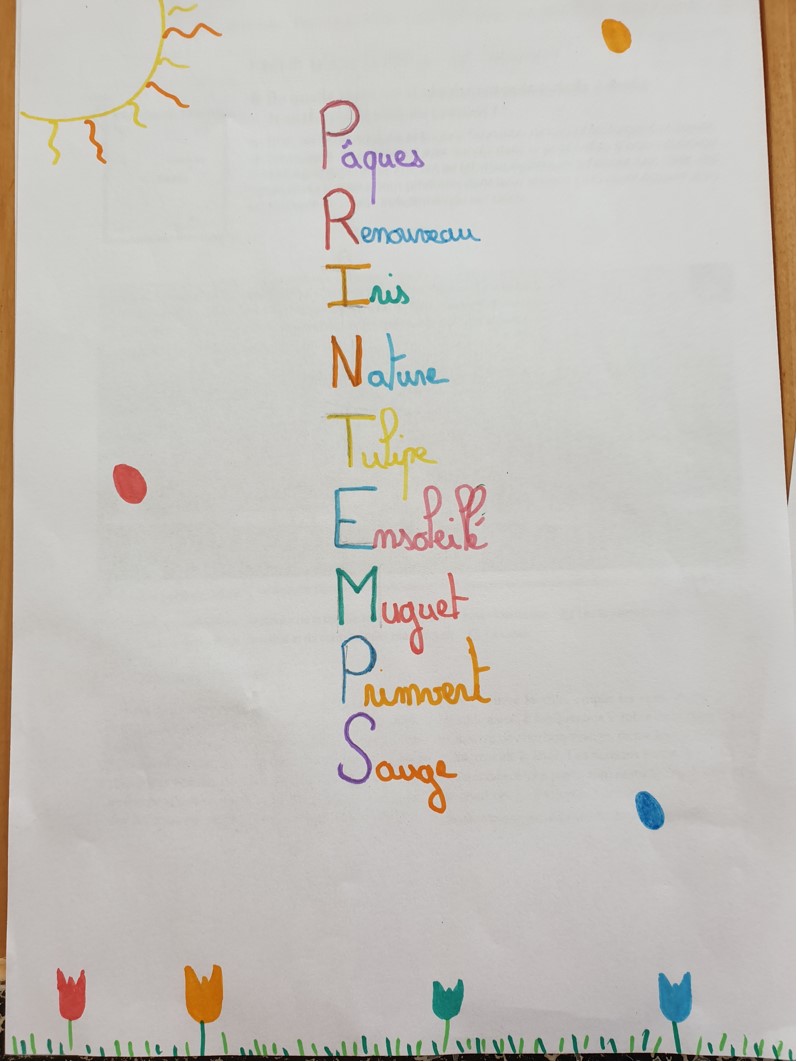 Pâques
Renouveau
Iris
Nature
Tulipe
Ensoleillé
Muguet
Primvert
Sauge